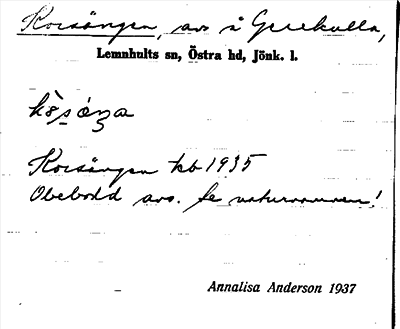 Korsängen, avs å Grekulla,
Lemnhults sn, Östra hd, Jönk. l.
Korsängen kb 1935
Obebodd avs. Se naturnamnen!
Annalisa Anderson 1937